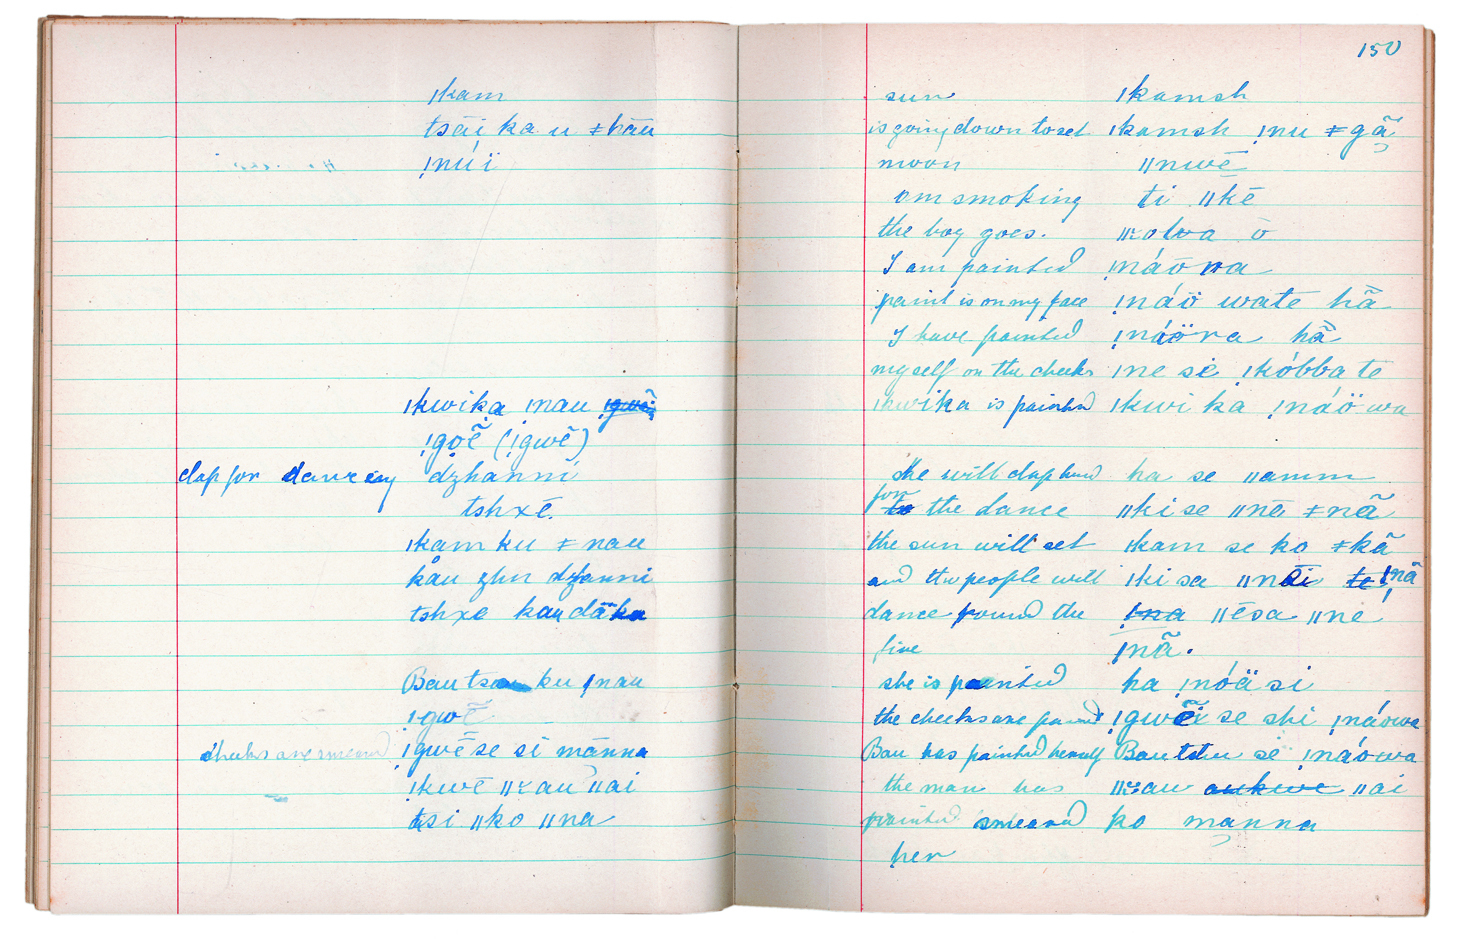 ǀkam
tsāi ka u ǂhāu
ǀ̣núï
ǀkwika ǀnau ǀgwē
ǀ̣gọẽ (ǀ̣gwē)
clap for dancing dzhanni
tshxē.
ǀkam ku ǂnau
kåu zhu dzhanni
tshxe kau dãka
Bau ku ǀnau
ǀgwẽ
cheeks are smeared ǀgwē se si mānna
ǀkwē ǁau ǁai
tsi ǁko ǁna
150
sun ǀkamsh
is going down to set ǀkamsh ǀ̣nu ǂgã
moon ǁnwē
am smoking ti ǁkē
the boy goes. ǁolwa ō
I am painted ǀ̣náōra
paint is on my face ǀ̣náö wate hã
I have painted ǀ̣náöra hã
myself on the cheeks ǀne se ǀ̣kóbba te
ǀkwika is painted ǀkwi ka ǀ̣náö wa
She will clap hand ha se ǁamm
for
to the dance ǁkise ǁnē ǂnã
the sun will set ǀkam se ko ǂkã
and the people will ǀki sa ǁnãi te ǀ̣nã
dance round the ǀ̣na ǁēsa ǁne
fire ǀ̣nã.
she is painted ha ǀ̣nóä si
the cheeks are paind ǀ̣gwẽi se shi ǀ̣náowa
Bau has painted herself Bau se ǀ̣náowa
the man has ǁau aukwe ǁai
painted smeared ko manna
her